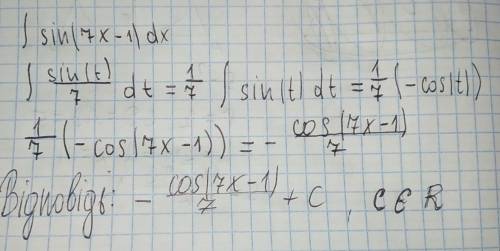 ∫ sin(7x-1) dx
∫ sin(t)/7 dt = 1/7 ∫ sin(t) dt = 1/7 (-cos(t))
1/7 (-cos(7x-1)) = - cos(7x-1)/7
Відповідь: - cos(7x-1)/7 + C , C ∈ R